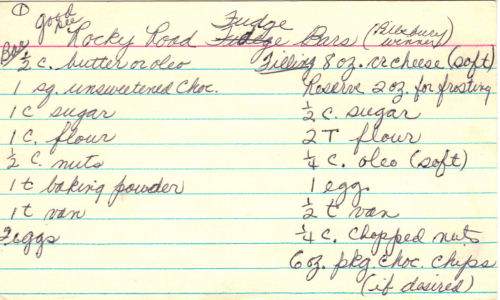 ① good
Rocky Road Fudge Bars (Pillsbury winner)
Bars
½ c. butter or oleo
1 sq. unsweetened choc.
1 c sugar
1 c. flour
½ c. nuts
1 t baking powder
1 t van
2 eggs
Filling 8 oz. cr cheese (soft)
Reserve 2 oz. for frosting
½ c. sugar
2 T flour
¼ c. oleo (soft)
1 egg
½ t van
¼ c. chopped nuts
6 oz. pkg choc. chips
(if desired)